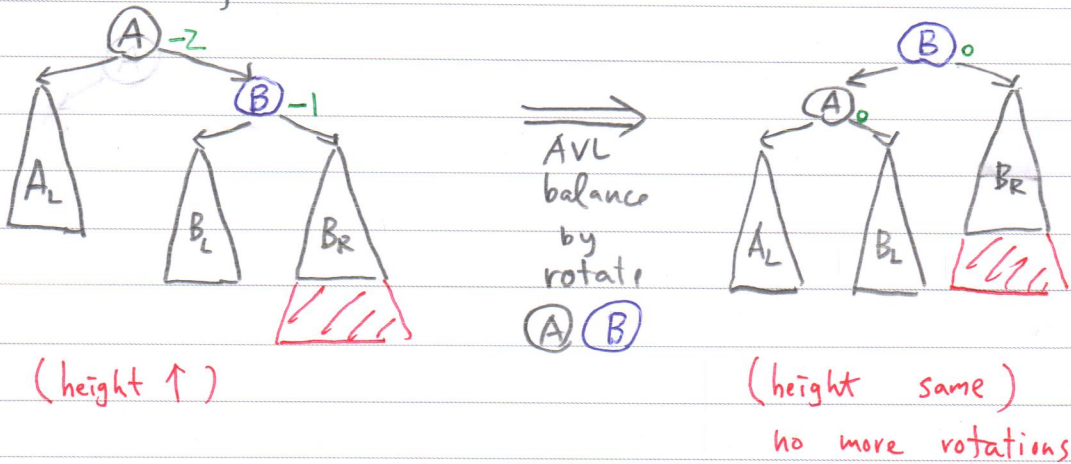 A -2
B -1
A_L
B_L
B_R
AVL
balance
by
rotate
A B
B 0
A 0
B_R
A_L
B_L
(height ↑)
(height same)
no more rotations